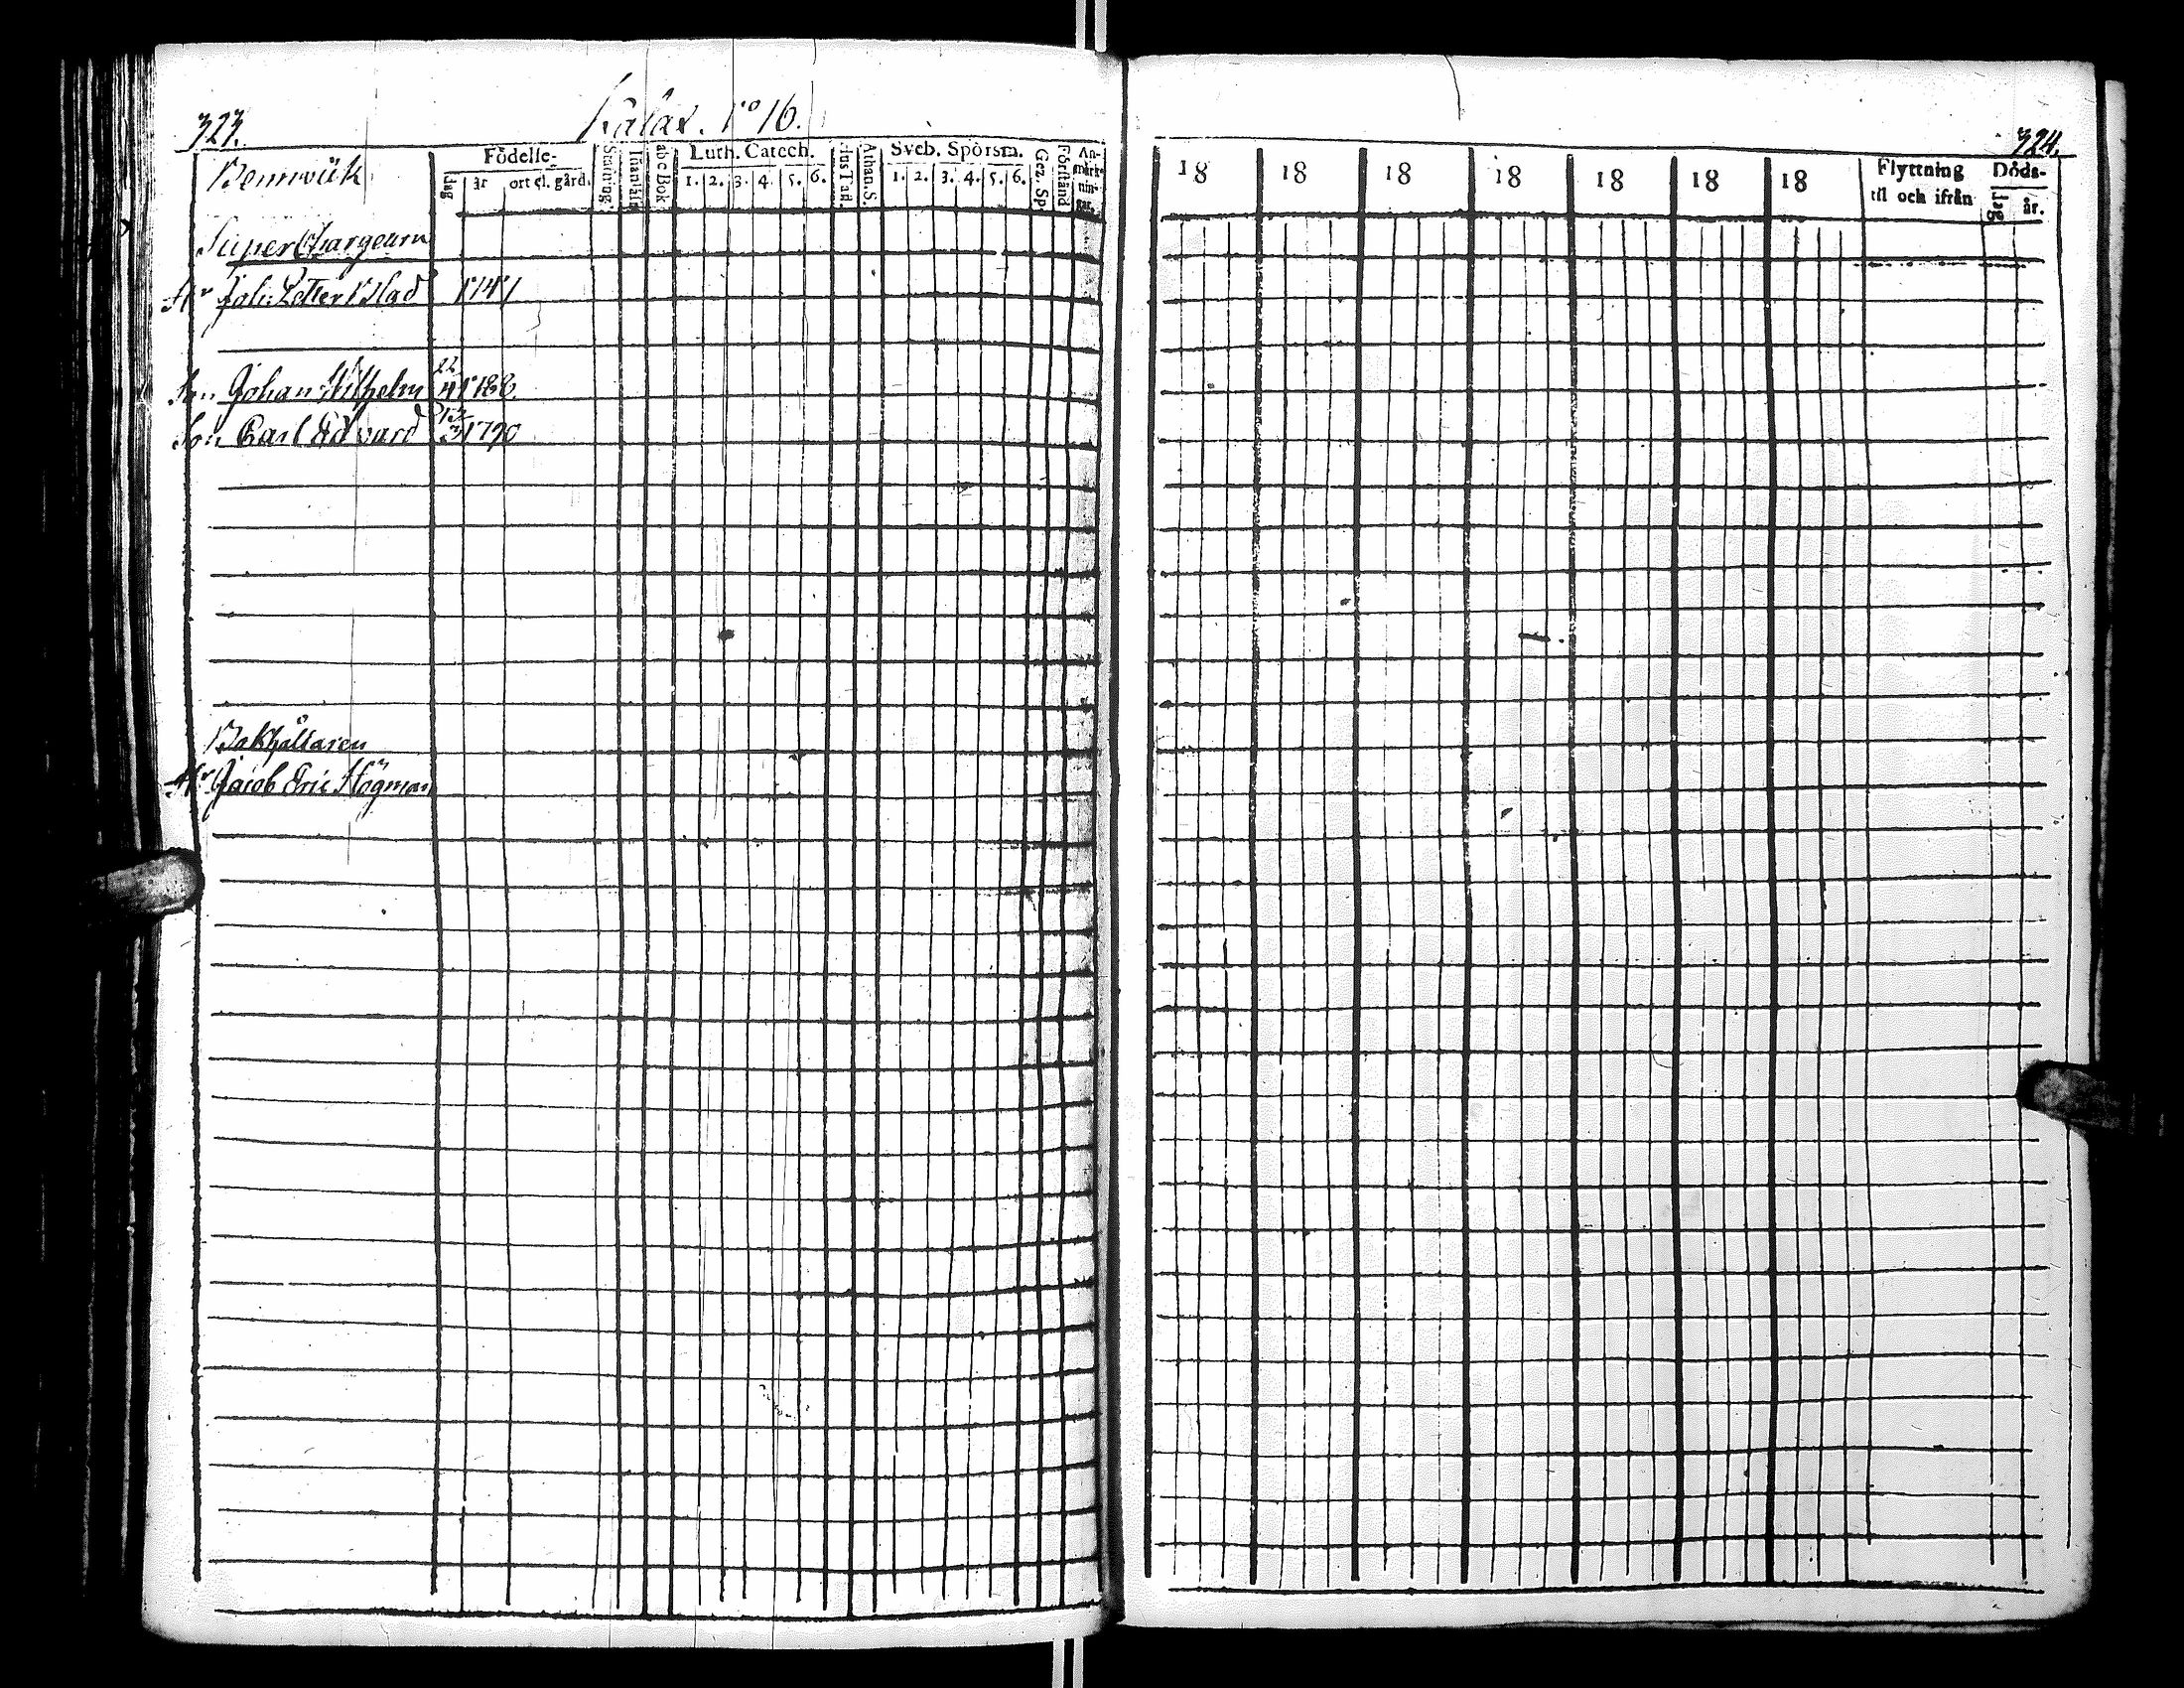 323.
Kalax. No 16.
Bennvük
Födelse-
dag
år
ort el. gård.
Stafning.
Innanläsn
abc Bok
Luth. Catech.
1. 2. 3. 4. 5. 6.
Hus Tafl.
Athan. S.
Sveb. Spörsm.
1. 2. 3. 4. 5. 6.
Gez. Sp.
Förstånd
An-
märk-
nin-
gar.
SuperChargeurn
Hr Joh: Petter
Son Johan Wilhelm 22/4 1788
Son Carl Edvard 13/3 1790
Bokhållaren
Hr Jacob Eric Högman
324.
18 18 18 18 18 18 18
Flyttning
til och ifrån
Döds-
dag
år.